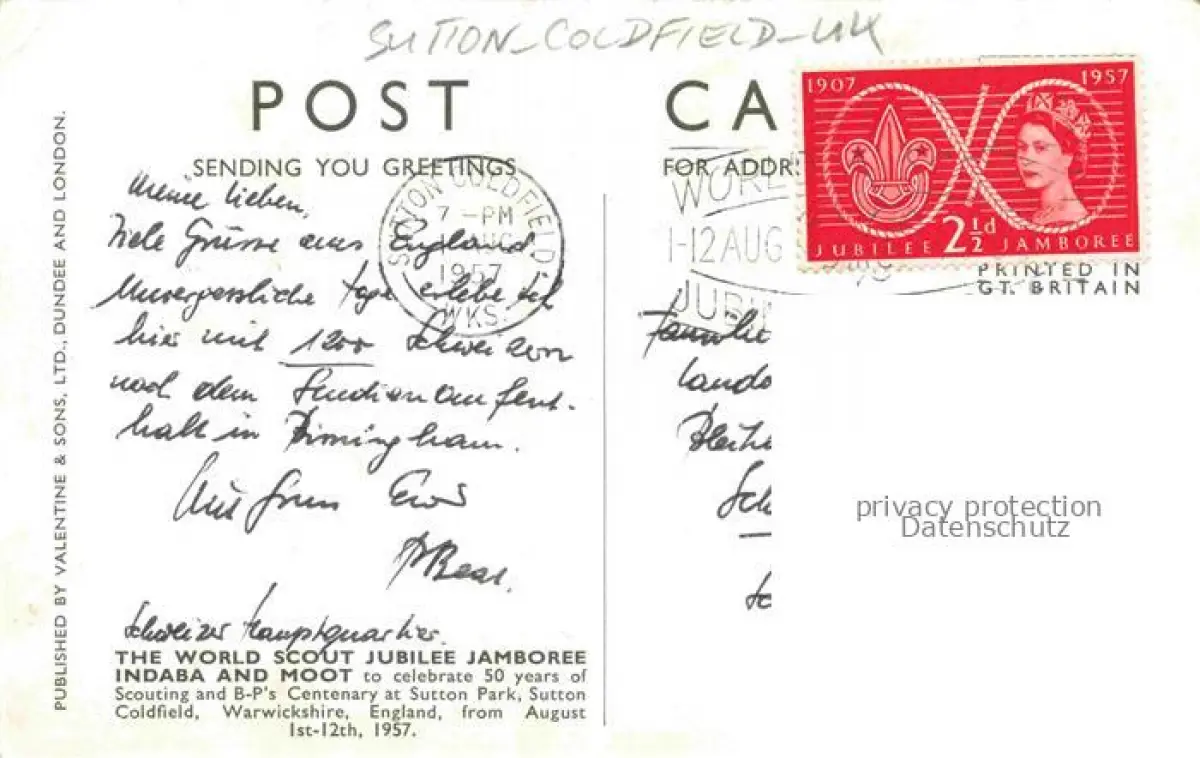 SUTTON_COLDFIELD_UK
POST CA
1907 1957
JUBILEE 2½d JAMBOREE
SENDING YOU GREETINGS
FOR ADDR
SUTTON COLDFIELD
7 - PM
AUG
1957
WKS.
WORL
1-12 AUG
JUBI
PRINTED IN
GT. BRITAIN
PUBLISHED BY VALENTINE & SONS, LTD., DUNDEE AND LONDON.
Meine Lieben,
Viele Grüsse aus England
Unvergessliche Tage erlebe ich
hier mit 1200 Schweizern
nach dem Studienaufent-
halt in Birmingham.
Mit Gruss
Schweizer Hauptquartier.
Familie
Lando
Sch
privacy protection
Datenschutz
THE WORLD SCOUT JUBILEE JAMBOREE
INDABA AND MOOT to celebrate 50 years of
Scouting and B-P's Centenary at Sutton Park, Sutton
Coldfield, Warwickshire, England, from August
1st-12th, 1957.